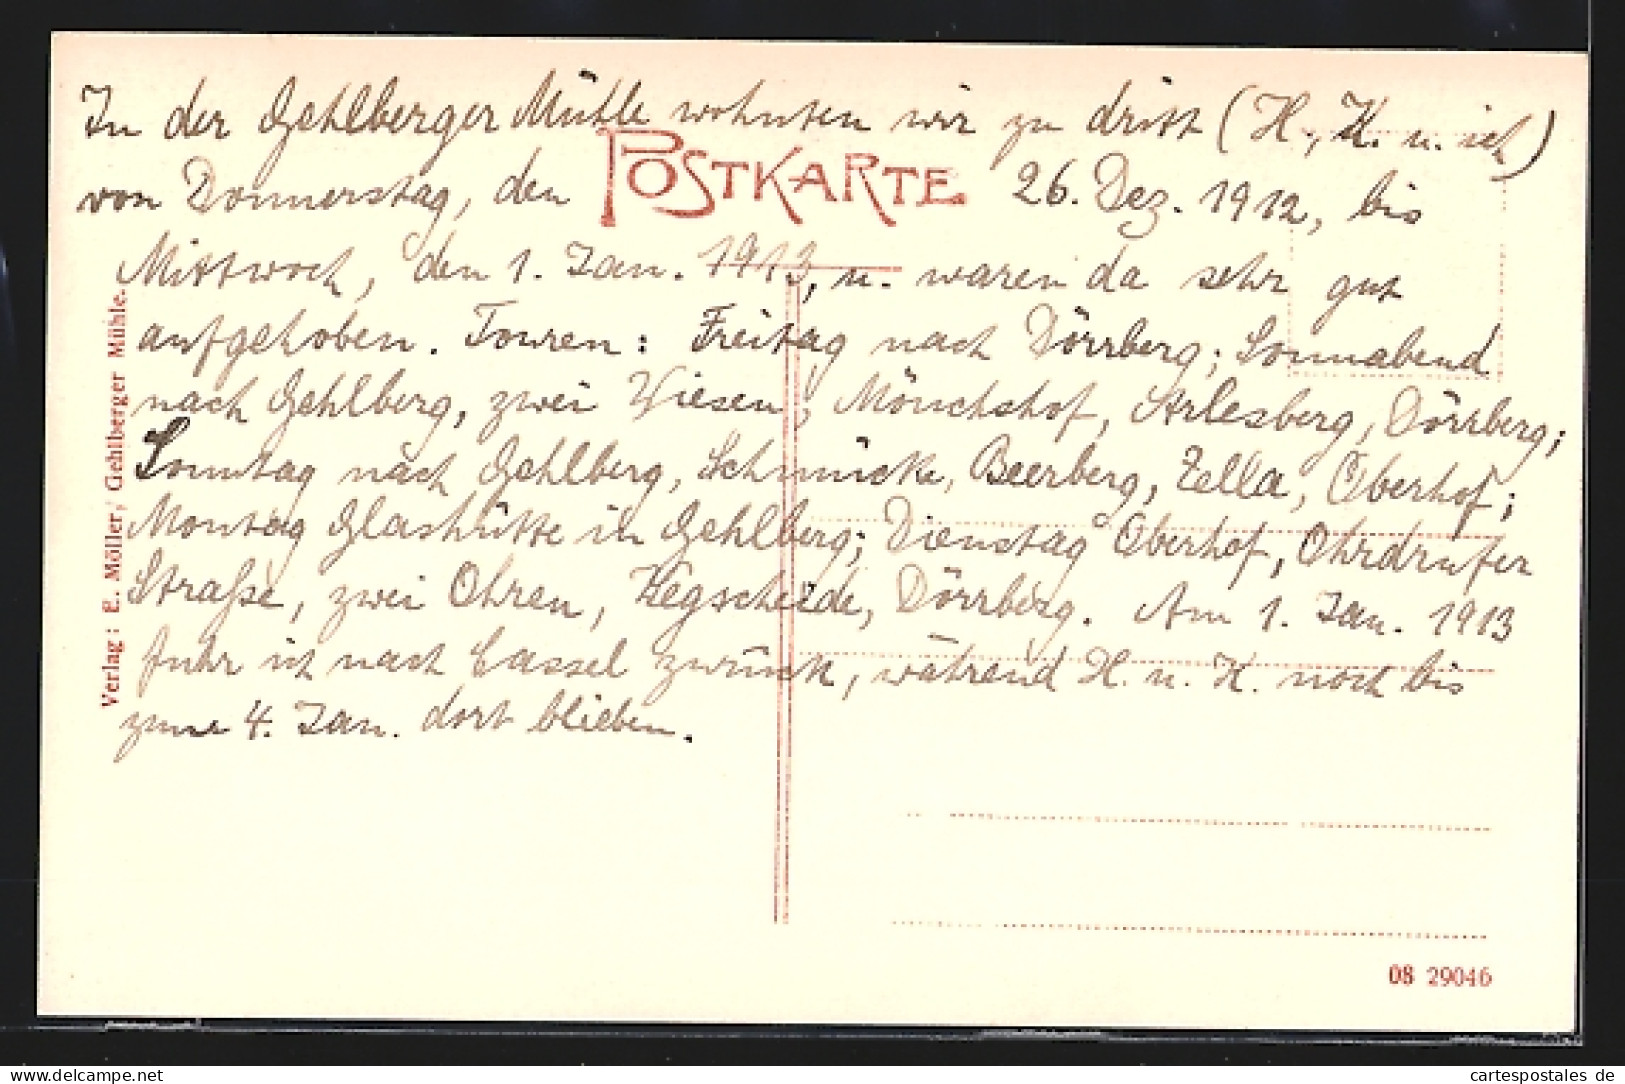 In der Gehlberger Mühle wohnten wir zu dritt (H., K. u. ich)
POSTKARTE
von Donnerstag, den 26. Dez. 1912, bis
Mittwoch, den 1. Jan. 1913, u. waren da sehr gut
aufgehoben. Touren: Freitag nach Dörrberg; Sonnabend
nach Gehlberg, zwei Wiesen, Mönchshof, Arlesberg, Dörrberg;
Sonntag nach Gehlberg, Schmücke, Beerberg, Zella, Oberhof;
Montag Glashütte in Gehlberg; Dienstag Oberhof, Ohrdrufer
Straße, zwei Ohren, Wegscheide, Dörrberg. Am 1. Jan. 1913
fuhr ich nach Cassel zurück, während H. u. K. noch bis
zum 4. Jan. dort blieben.
Verlag: E. Möller, Gehlberger Mühle.
08 29046
www.cartespostales.eu
cartespostales de